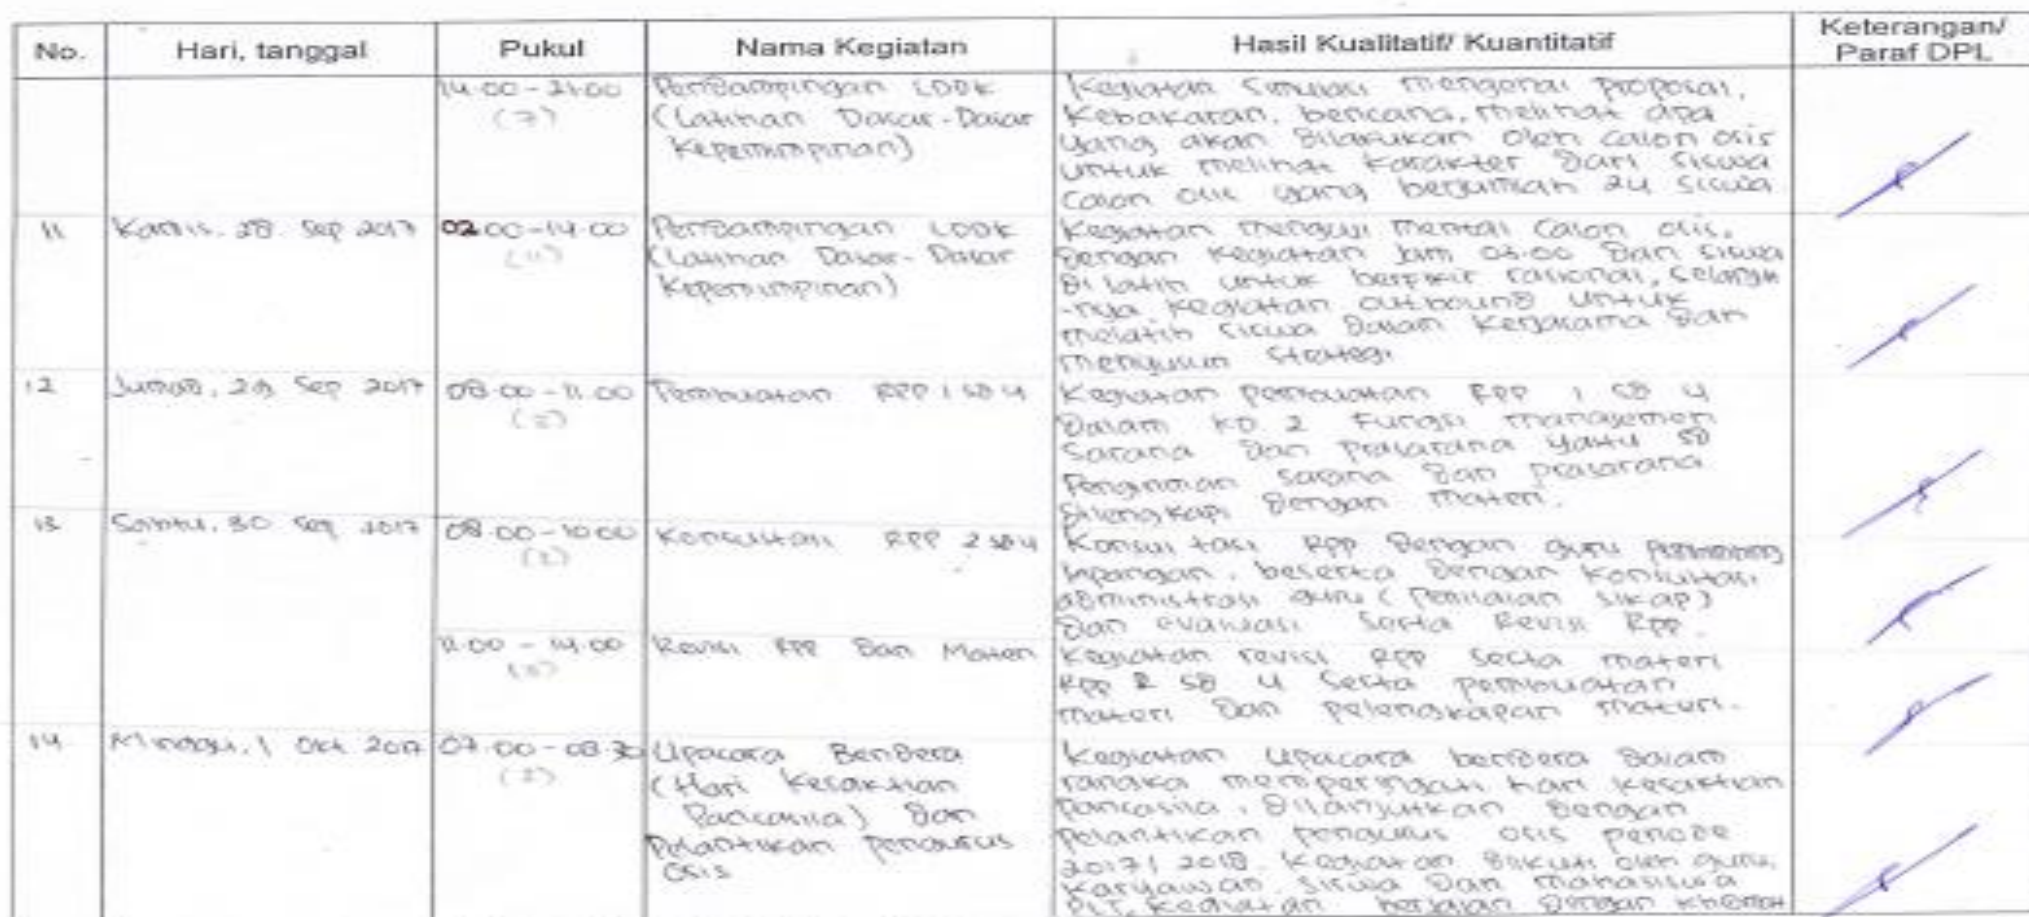 No. Hari, tanggal Pukul Nama Kegiatan Hasil Kualitatif/ Kuantitatif Keterangan/
Paraf DPL
14.00 - 21.00
(7)
Pendampingan LDDK
(Latihan Dasar-Dasar
Kepemimpinan)
Kegiatan simulasi mengenai proposal,
Kebakaran, bencana, melihat apa
yang akan dilakukan oleh calon osis
untuk melihat karakter dari siswa
calon osis yang berjumlah 24 siswa
11
Kamis, 28 Sep 2017
02.00-14.00
(11)
Pendampingan LDDK
(Latihan Dasar-Dasar
Kepemimpinan)
Kegiatan menguji mental calon osis,
dengan kegiatan jam 03.00 dan siswa
di latih untuk berpikir rasional, selanjut
-nya kegiatan outbound untuk
melatih siswa dalam kerjasama dan
menyusun strategi
12
Jumat, 29 Sep 2017
08.00 - 11.00
Pembuatan RPP 1 SD 4
Kegiatan pembuatan RPP 1 SD 4
Dalam KD 2 Fungsi manajemen
Sarana dan prasarana yaitu SD
sarana dan prasarana
dilengkapi dengan materi.
13
Sabtu, 30 Sep 2017
08.00-10.00
(2)
Konsultasi RPP 2 SD 4
Konsultasi RPP dengan guru
lapangan, beserta dengan konsultasi
administrasi guru (Penilaian sikap)
dan evaluasi serta Revisi RPP.
11.00 - 14.00
(3)
Revisi RPP dan Materi
Kegiatan revisi RPP serta materi
RPP 2 SD 4 serta pembuatan
materi dan pelengkapan materi.
14
Minggu, 1 Okt 2017
07.00-08.30
(2)
Upacara Bendera
(Hari Kesaktian
Pancasila) dan
Pelantikan pengurus
Osis
Kegiatan Upacara bendera dalam
rangka memperingati hari kesaktian
pancasila, dilanjutkan dengan
pelantikan pengurus osis periode
2017/2018. Kegiatan diikuti oleh guru,
karyawan, siswa dan mahasiswa
PLT, kegiatan berjalan dengan khidmat